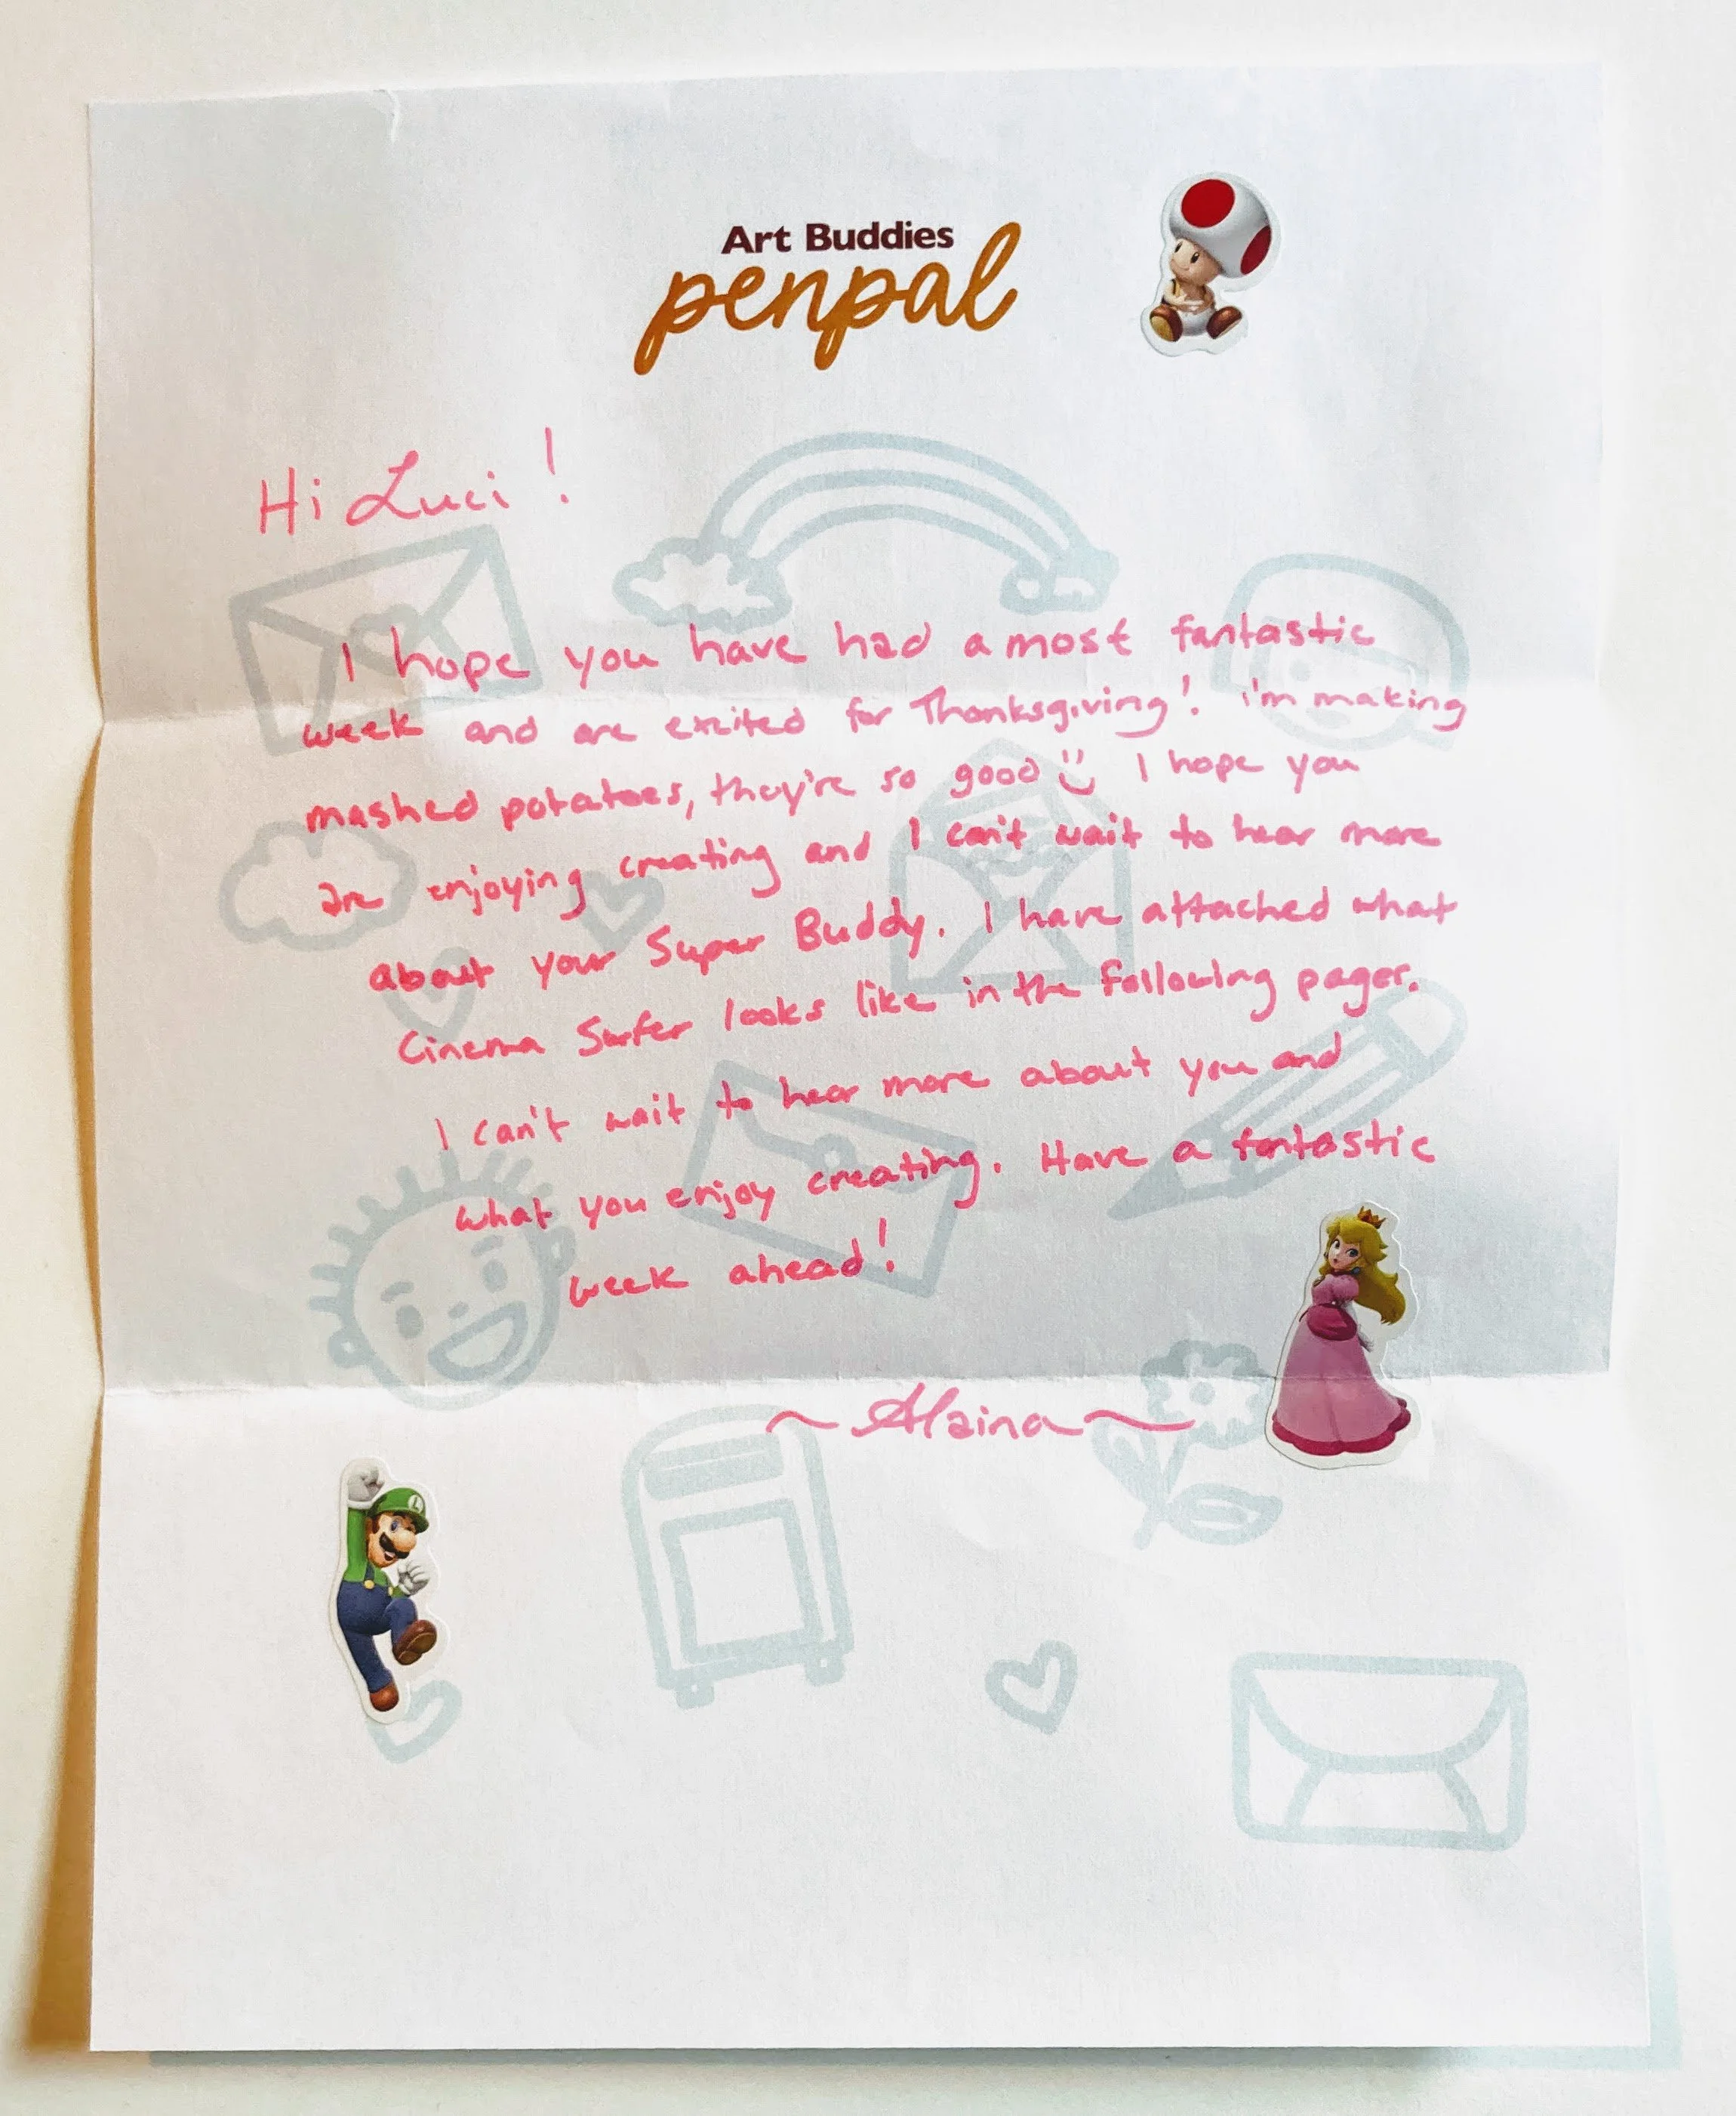 Art Buddies
penpal
Hi Luci!
I hope you have had a most fantastic
week and are excited for Thanksgiving! i'm making
mashed potatoes, they're so good :) I hope you
are enjoying creating and I can't wait to hear more
about your Super Buddy. I have attached what
Cinema Surfer looks like in the following pages.
I can't wait to hear more about you and
what you enjoy creating. Have a fantastic
week ahead!
~Alaina~
L